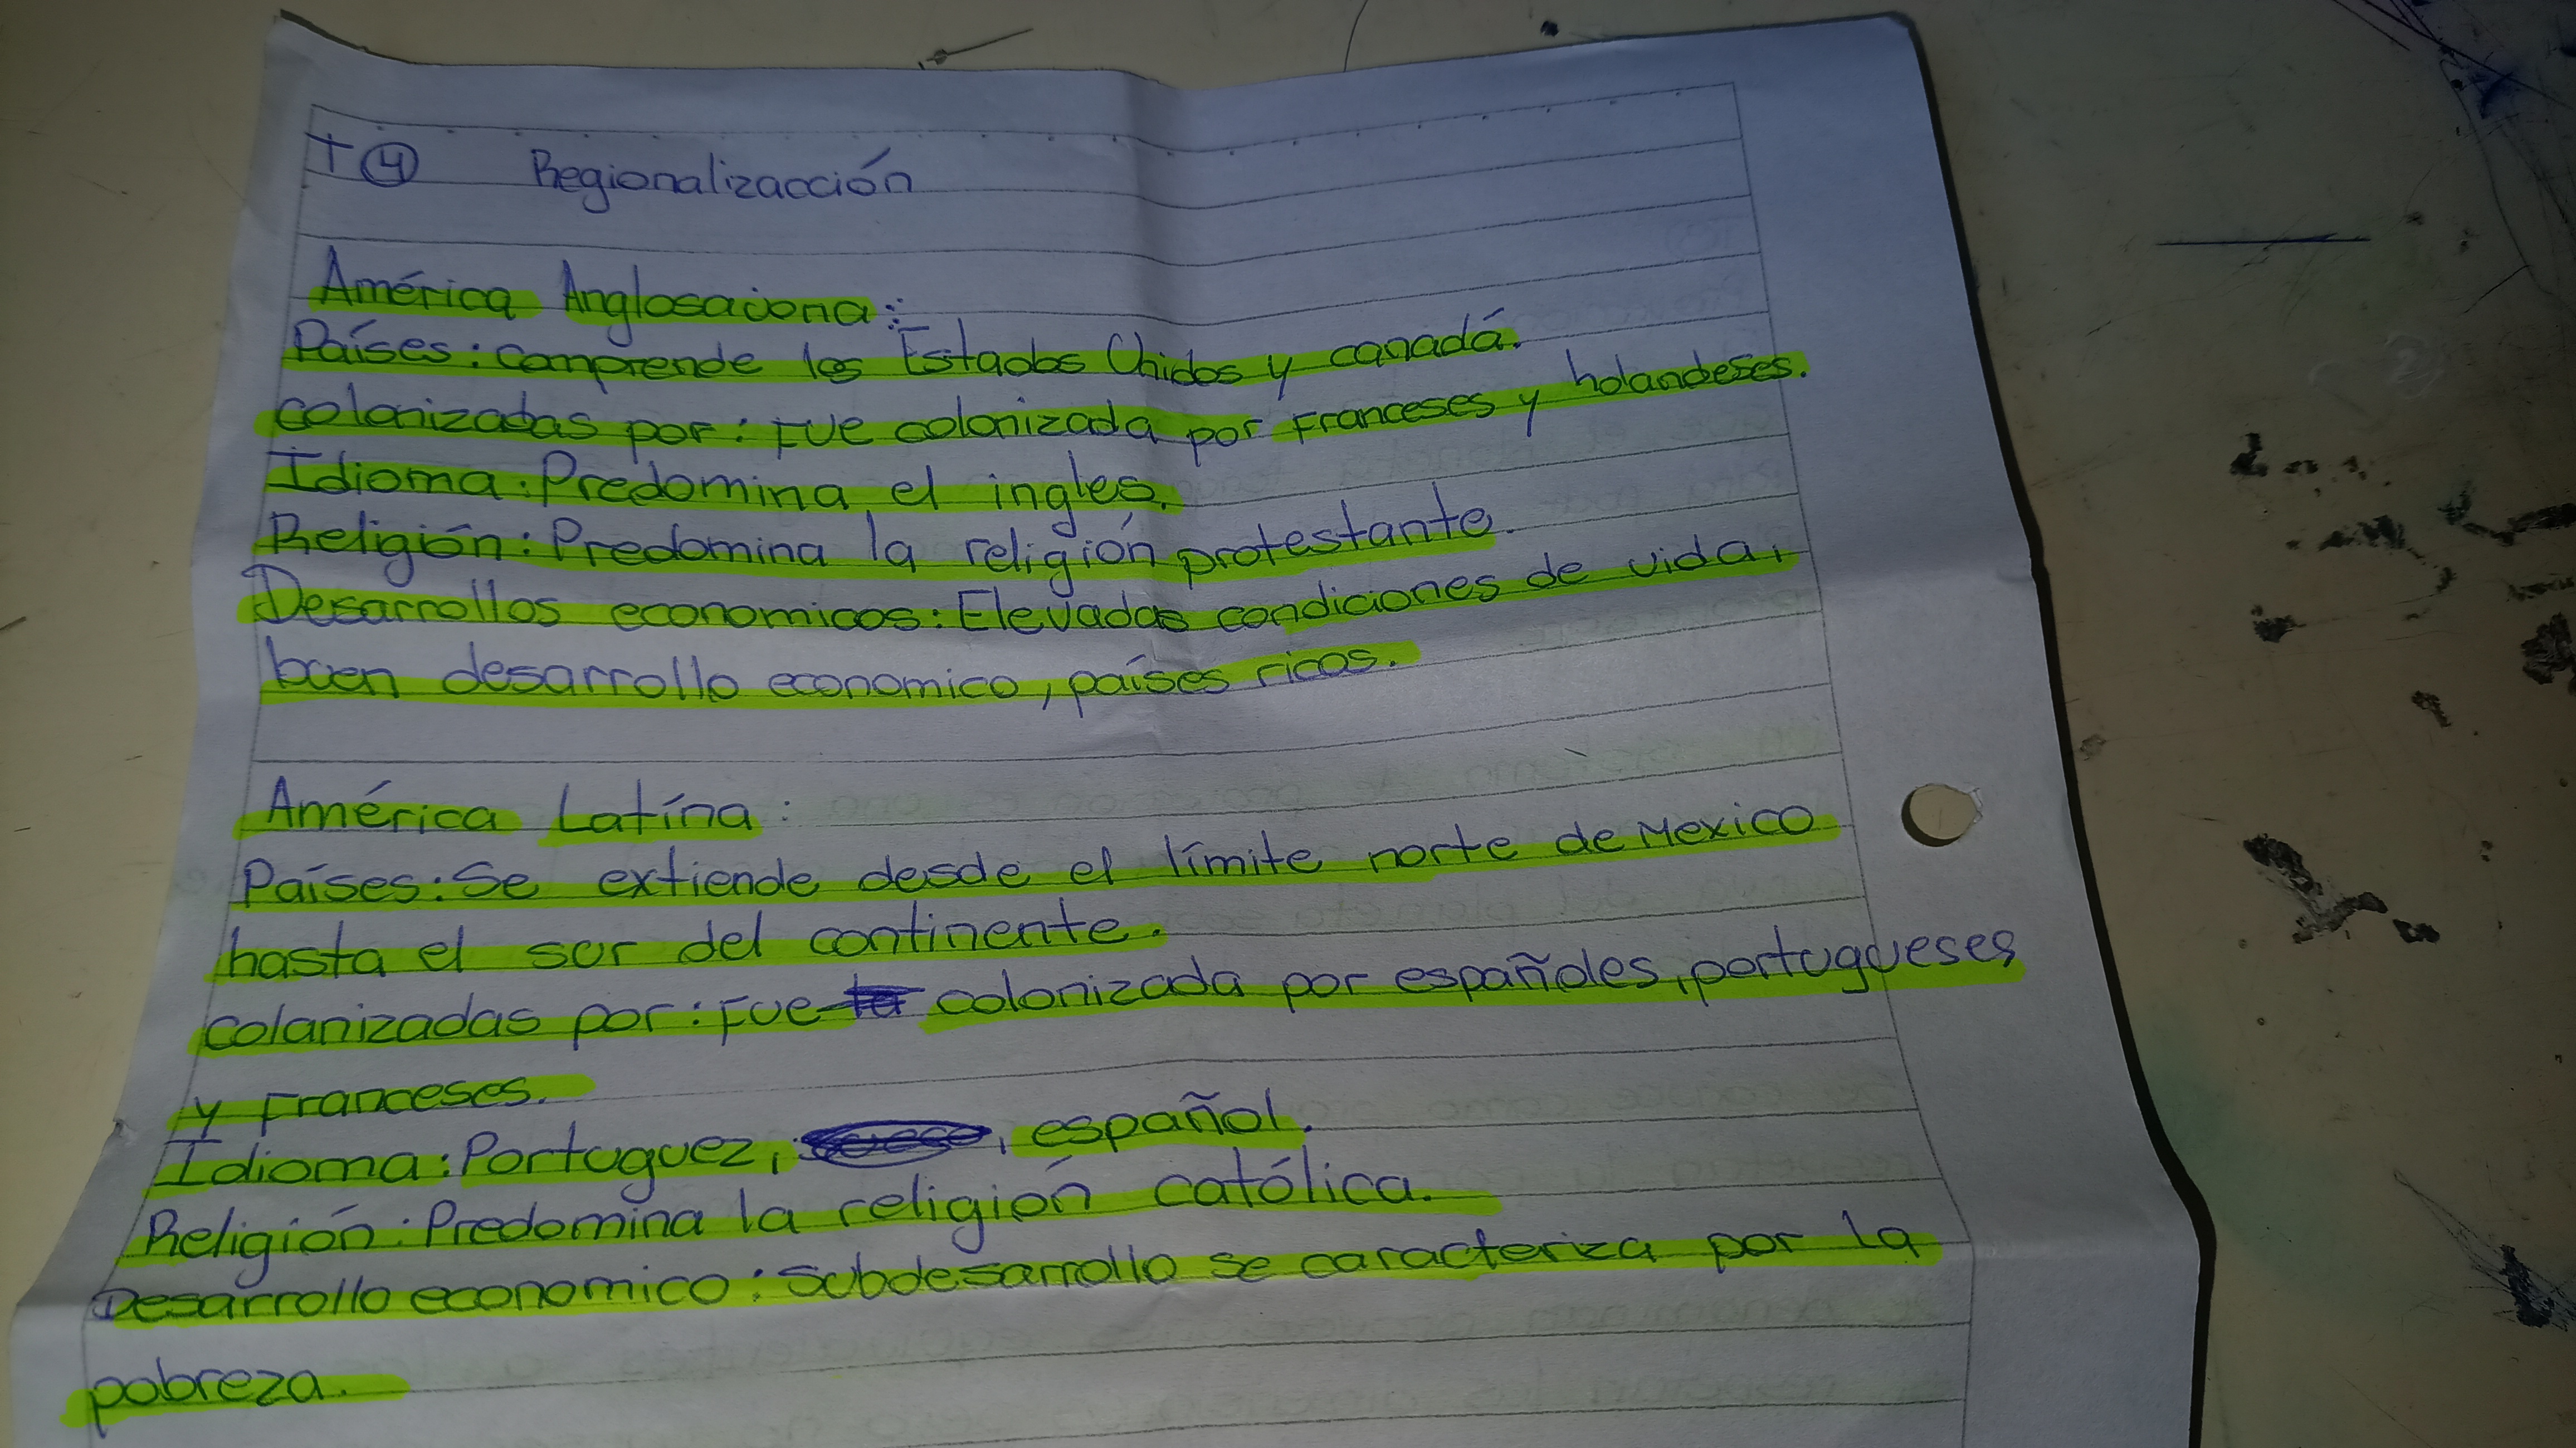 T④ Regionalizacción
América Anglosajona:
Países: comprende los Estados Unidos y canadá.
colonizadas por: Fue colonizada por Franceses y holandeses.
Idioma: Predomina el ingles.
Religión: Predomina la religión protestante.
Desarrollos economicos: Elevadas condiciones de vida,
buen desarrollo economico, países ricos.
América Latína:
Países: Se extiende desde el límite norte de Mexico
hasta el sur del continente.
colanizadas por: Fue colonizada por españoles, portugueses
y Franceses.
Idioma: Portuguez, , español.
Religión: Predomina la religión católica.
Desarrollo economico: subdesarrollo se caracteriza por la
pobreza.